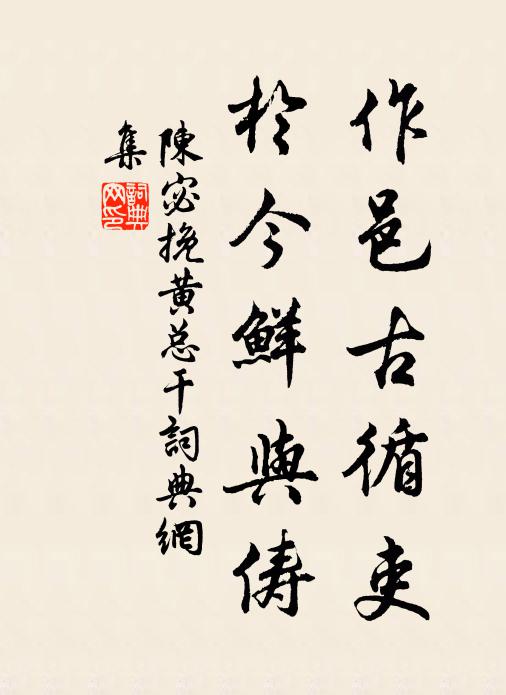 作邑古循吏
於今鮮與儔
陳宓挽黄总干詞典網
集
詞典網印